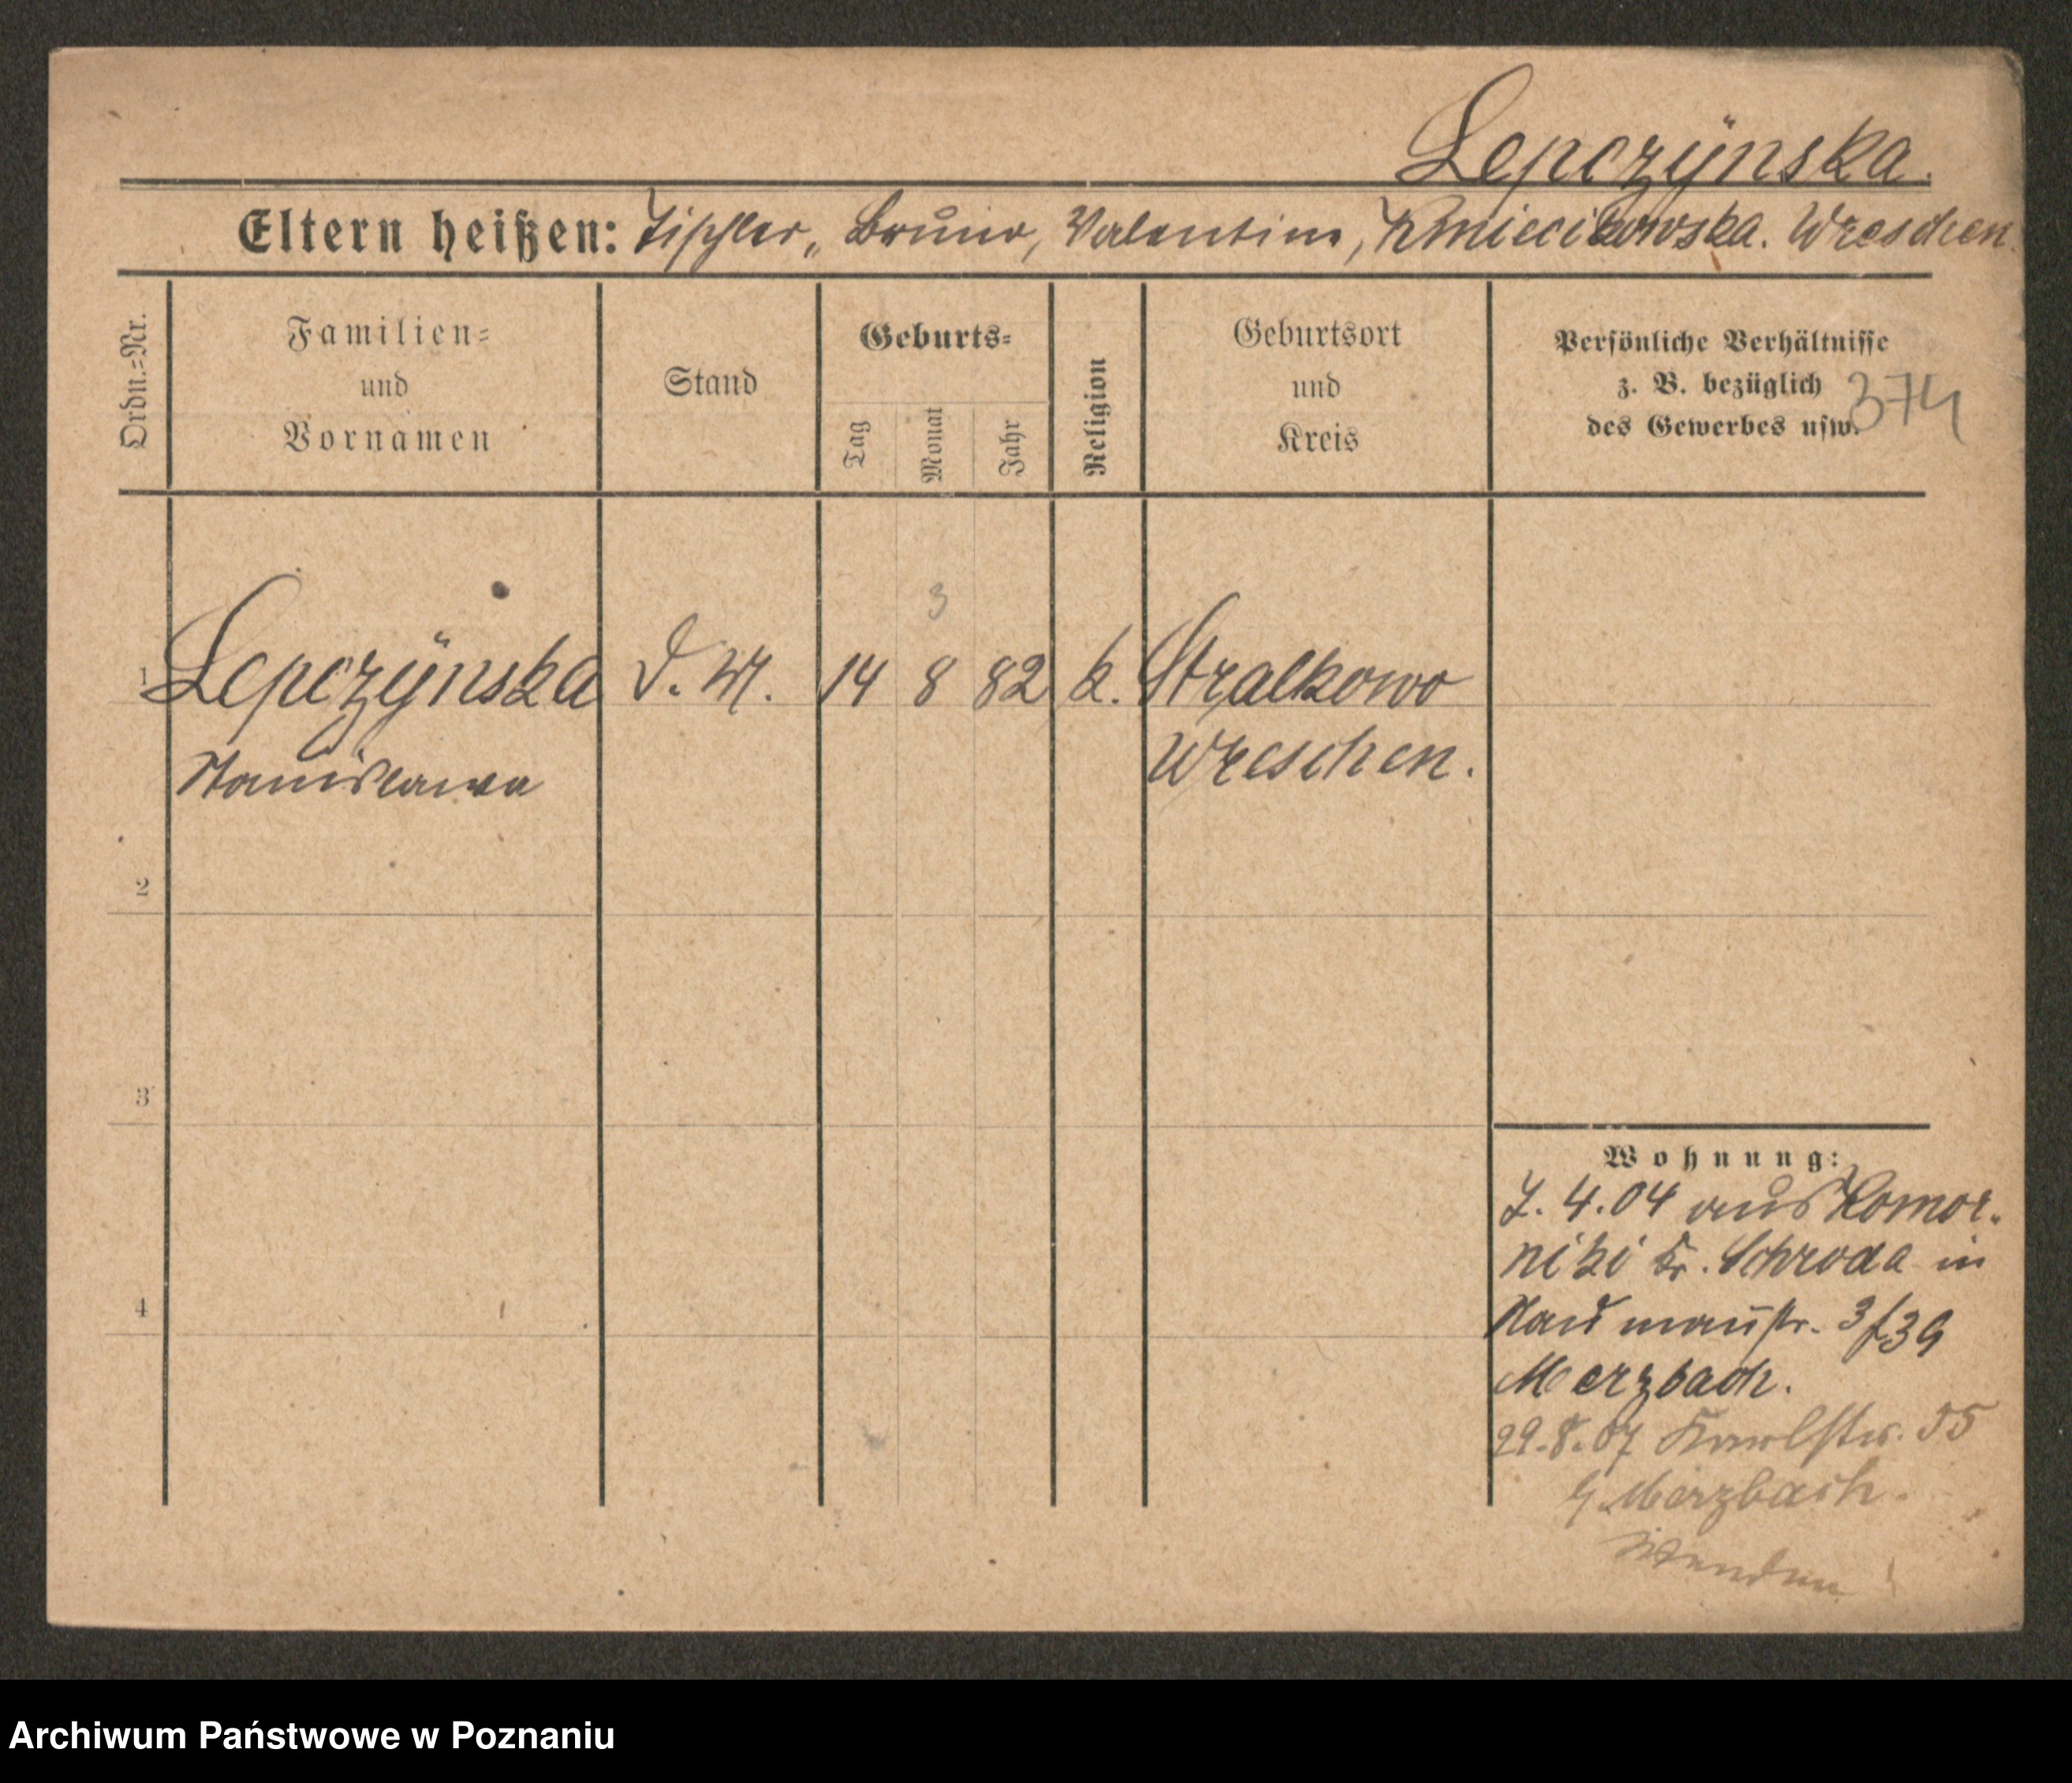 Lepczÿnska.
Eltern heißen: Tischler, Bruno, Valentine, Kmiecikowska. Wreschen.
Ordn.=Nr.
Familien=
und
Vornamen
Stand
Geburts=
Tag
Monat
Jahr
Religion
Geburtsort
und
Kreis
Persönliche Verhältnisse
z. B. bezüglich
des Gewerbes usw.
374
3
1 Lepczÿnska 14 8 82 k. Stralkowo
Stanislawa Wreschen.
2
3
4
Wohnung:
4.04 aus Komor-
niki Kr. Schroda in
Naumannstr. 39
Merzbach.
29.8.07 Karlstr.
Merzbach.
Wenden
Archiwum Państwowe w Poznaniu